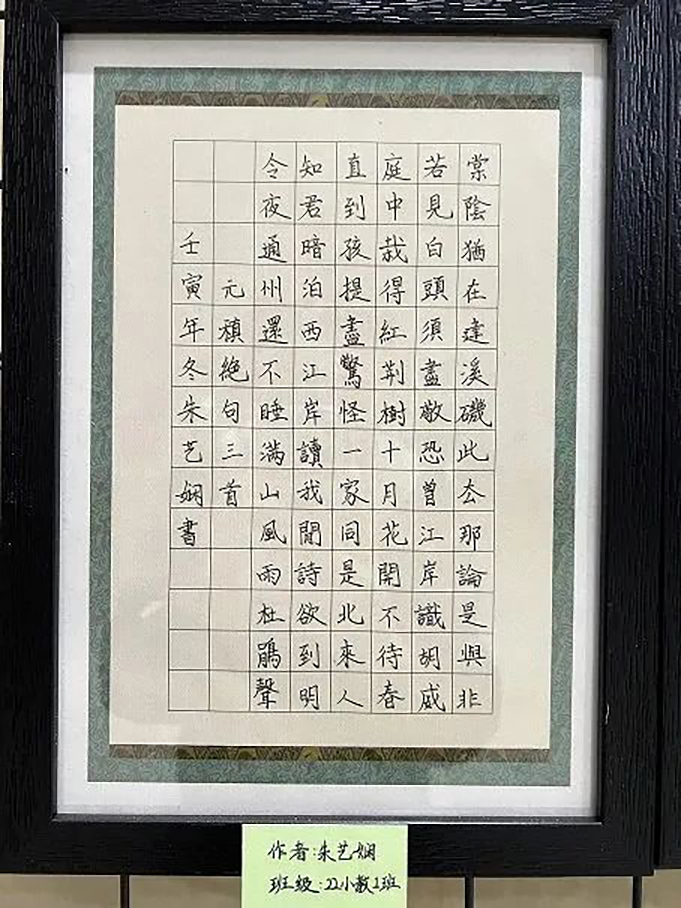 棠陰猶在建溪磯此去那論是與非
若見白頭須盡敬恐曾江岸識胡威
庭中栽得紅荆樹十月花開不待春
直到孩提盡驚怪一家同是北來人
知君暗泊西江岸讀我閒詩欲到明
令夜通州還不睡滿山風雨杜鵑聲
元稹絕句三首
壬寅年冬朱艺娴書
作者:朱艺娴
班级:22小教1班